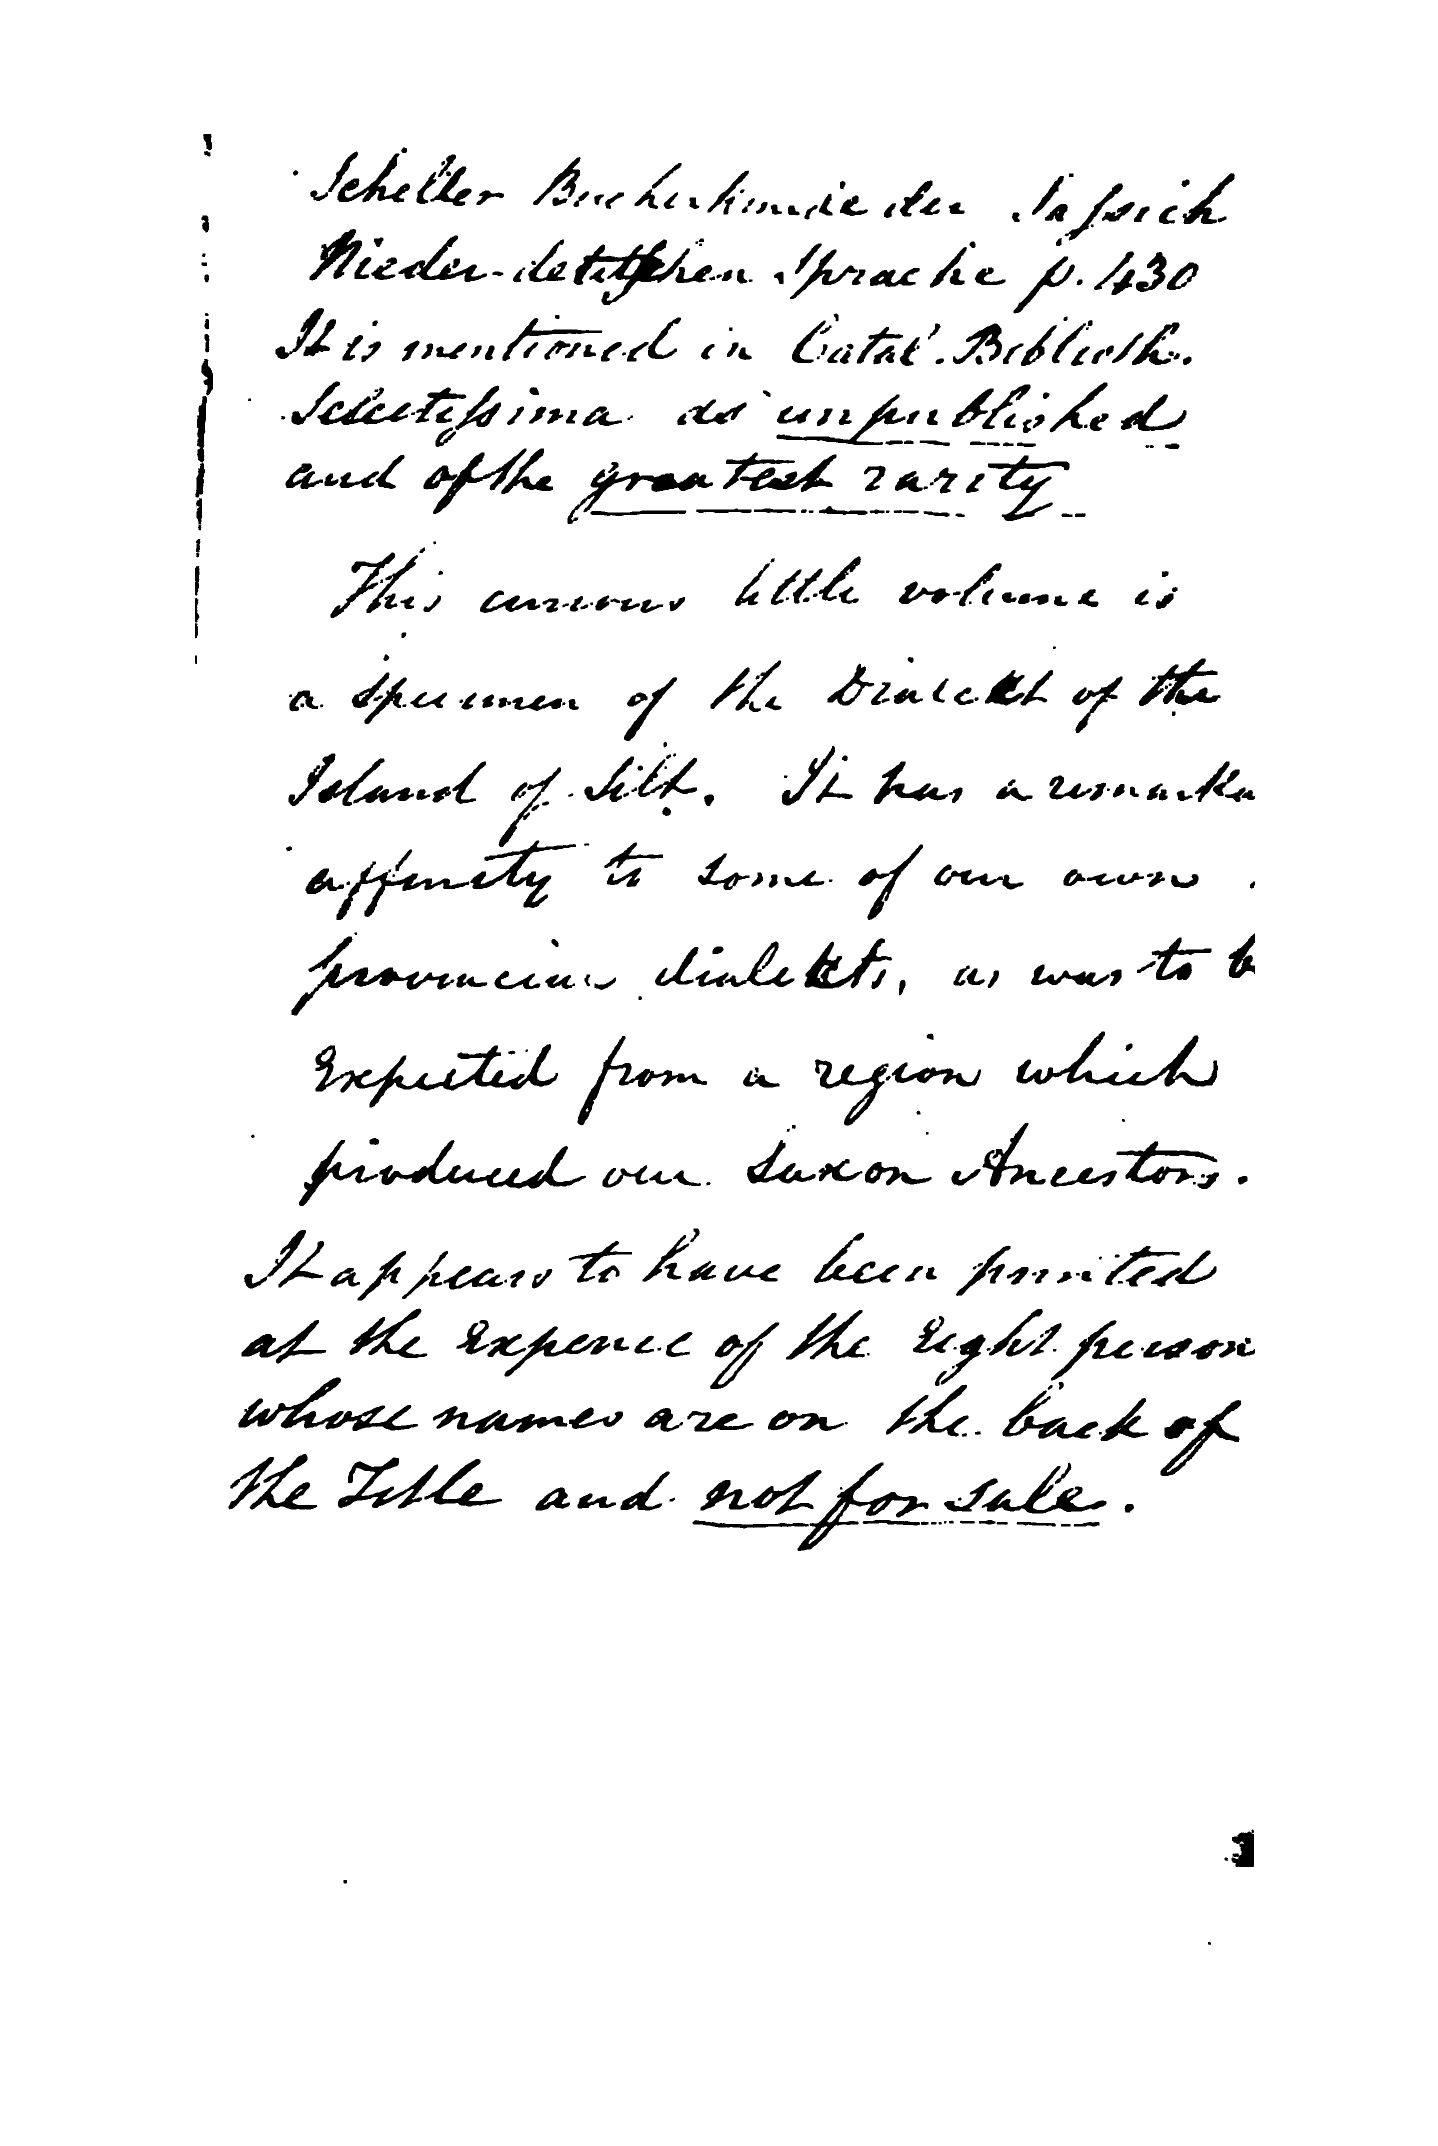 Scheller Bucherkunde der Sassich
Nieder-deutschen Sprache p. 430
It is mentioned in Catal. Biblioth.
Selectissima as unpublished
and of the greatest rarity
This curious little volume is
a specimen of the Dialect of the
Island of Silt. It has a remarka
affinity to some of our own
provincial dialects, as was to b
Expected from a region which
produced our Saxon Ancestors.
It appears to have been printed
at the Expence of the Eight person
whose names are on the back of
the Title and not for sale.